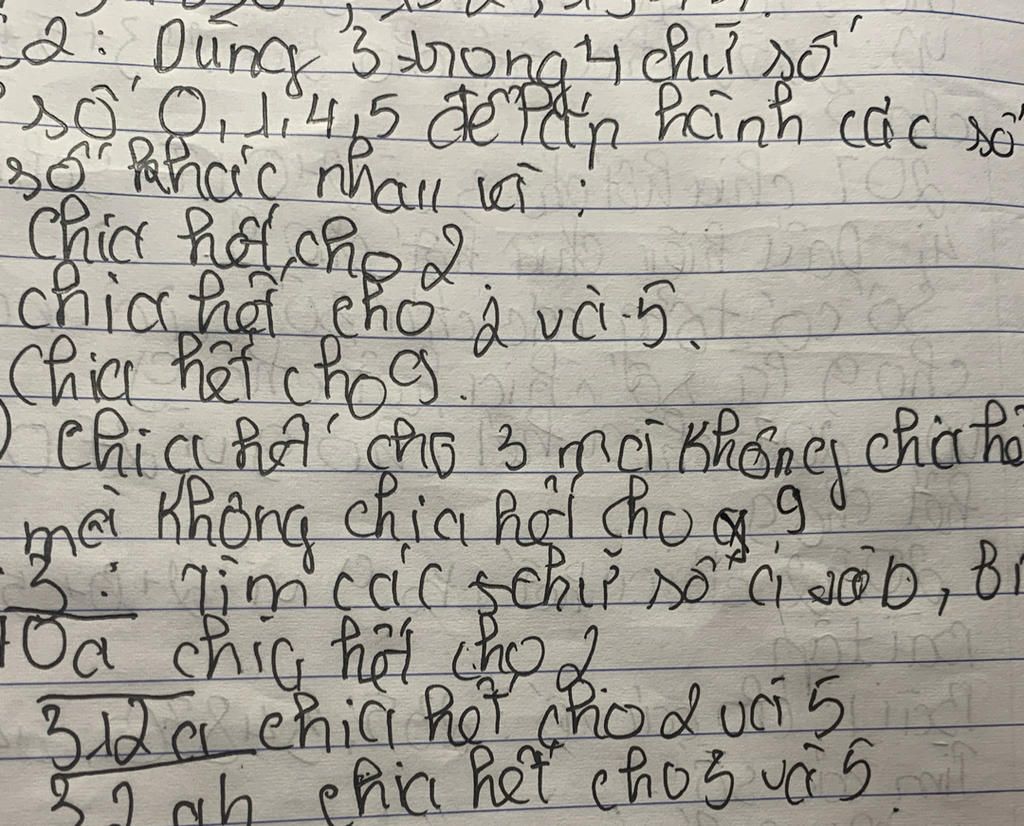 2: Dùng 3 trong 4 chữ số
số 0, 1, 4, 5 để các số
số khác nhau
Chia hết cho 2
chia hết cho 2 và 5.
Chia hết cho 9.
) chia hết cho 3 mà không
mà không chia hết cho 9
3: Tìm các chữ số a và b,
0a chia hết cho 2
312a chia hết cho 2 và 5
chia hết cho 3 và 5.